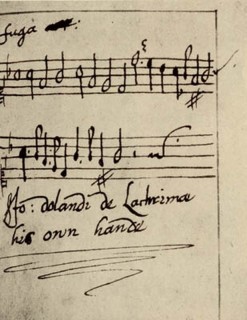 fuga
Jo: dolandi de Lachrimæ
his own hande